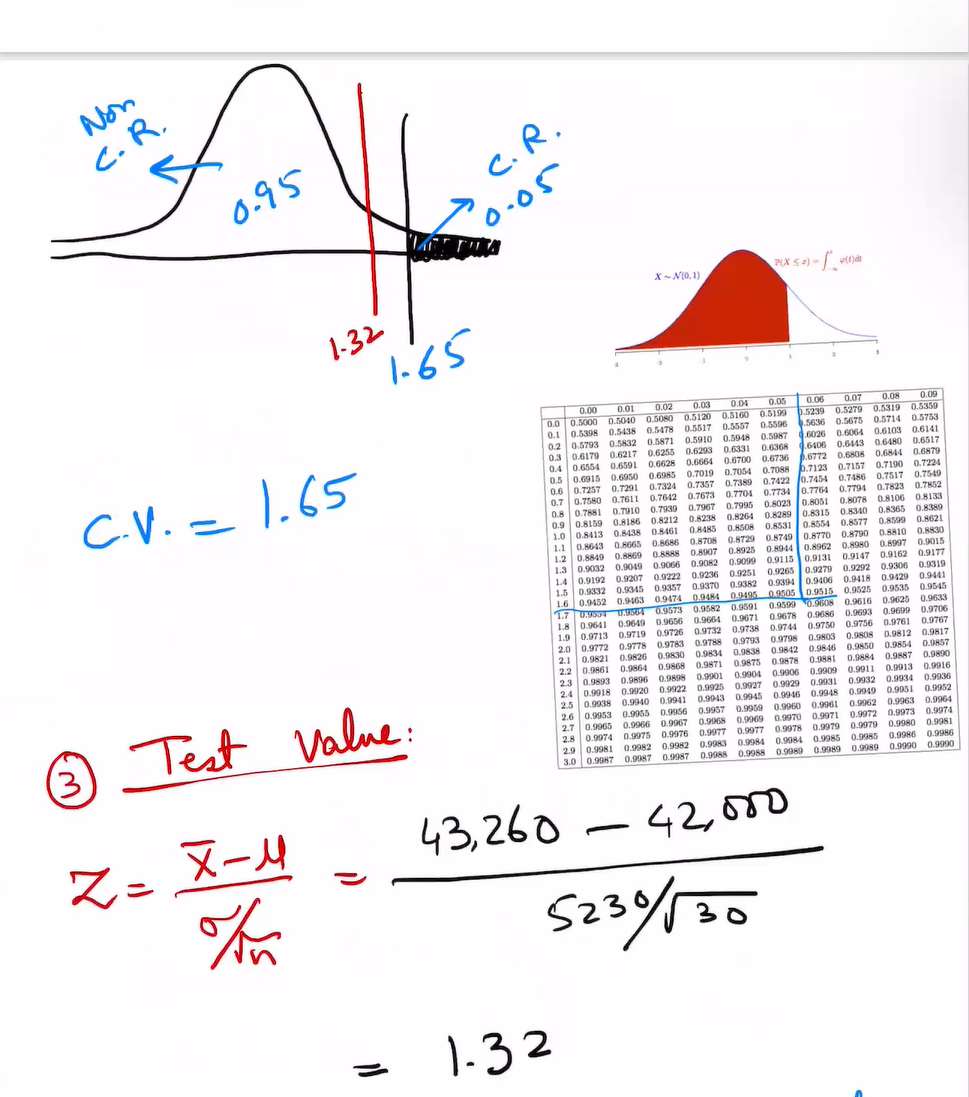 Non
C.R.
0.95
C.R.
0.05
1.32
1.65
X ~ N(0,1)
P(X ≤ x) = ∫ φ(t)dt
C.V. = 1.65
0.00 0.01 0.02 0.03 0.04 0.05 0.06 0.07 0.08 0.09
0.0 0.5000 0.5040 0.5080 0.5120 0.5160 0.5199 0.5239 0.5279 0.5319 0.5359
0.1 0.5398 0.5438 0.5478 0.5517 0.5557 0.5596 0.5636 0.5675 0.5714 0.5753
0.2 0.5793 0.5832 0.5871 0.5910 0.5948 0.5987 0.6026 0.6064 0.6103 0.6141
0.3 0.6179 0.6217 0.6255 0.6293 0.6331 0.6368 0.6406 0.6443 0.6480 0.6517
0.4 0.6554 0.6591 0.6628 0.6664 0.6700 0.6736 0.6772 0.6808 0.6844 0.6879
0.5 0.6915 0.6950 0.6985 0.7019 0.7054 0.7088 0.7123 0.7157 0.7190 0.7224
0.6 0.7257 0.7291 0.7324 0.7357 0.7389 0.7422 0.7454 0.7486 0.7517 0.7549
0.7 0.7580 0.7611 0.7642 0.7673 0.7704 0.7734 0.7764 0.7794 0.7823 0.7852
0.8 0.7881 0.7910 0.7939 0.7967 0.7995 0.8023 0.8051 0.8078 0.8106 0.8133
0.9 0.8159 0.8186 0.8212 0.8238 0.8264 0.8289 0.8315 0.8340 0.8365 0.8389
1.0 0.8413 0.8438 0.8461 0.8485 0.8508 0.8531 0.8554 0.8577 0.8599 0.8621
1.1 0.8643 0.8665 0.8686 0.8708 0.8729 0.8749 0.8770 0.8790 0.8810 0.8830
1.2 0.8849 0.8869 0.8888 0.8907 0.8925 0.8944 0.8962 0.8980 0.8997 0.9015
1.3 0.9032 0.9049 0.9066 0.9082 0.9099 0.9115 0.9131 0.9147 0.9162 0.9177
1.4 0.9192 0.9207 0.9222 0.9236 0.9251 0.9265 0.9279 0.9292 0.9306 0.9319
1.5 0.9332 0.9345 0.9357 0.9370 0.9382 0.9394 0.9406 0.9418 0.9429 0.9441
1.6 0.9452 0.9463 0.9474 0.9484 0.9495 0.9505 0.9515 0.9525 0.9535 0.9545
1.7 0.9554 0.9564 0.9573 0.9582 0.9591 0.9599 0.9608 0.9616 0.9625 0.9633
1.8 0.9641 0.9649 0.9656 0.9664 0.9671 0.9678 0.9686 0.9693 0.9699 0.9706
1.9 0.9713 0.9719 0.9726 0.9732 0.9738 0.9744 0.9750 0.9756 0.9761 0.9767
2.0 0.9772 0.9778 0.9783 0.9788 0.9793 0.9798 0.9803 0.9808 0.9812 0.9817
2.1 0.9821 0.9826 0.9830 0.9834 0.9838 0.9842 0.9846 0.9850 0.9854 0.9857
2.2 0.9861 0.9864 0.9868 0.9871 0.9875 0.9878 0.9881 0.9884 0.9887 0.9890
2.3 0.9893 0.9896 0.9898 0.9901 0.9904 0.9906 0.9909 0.9911 0.9913 0.9916
2.4 0.9918 0.9920 0.9922 0.9925 0.9927 0.9929 0.9931 0.9932 0.9934 0.9936
2.5 0.9938 0.9940 0.9941 0.9943 0.9945 0.9946 0.9948 0.9949 0.9951 0.9952
2.6 0.9953 0.9955 0.9956 0.9957 0.9959 0.9960 0.9961 0.9962 0.9963 0.9964
2.7 0.9965 0.9966 0.9967 0.9968 0.9969 0.9970 0.9971 0.9972 0.9973 0.9974
2.8 0.9974 0.9975 0.9976 0.9977 0.9977 0.9978 0.9979 0.9979 0.9980 0.9981
2.9 0.9981 0.9982 0.9982 0.9983 0.9984 0.9984 0.9985 0.9985 0.9986 0.9986
3.0 0.9987 0.9987 0.9987 0.9988 0.9988 0.9989 0.9989 0.9989 0.9990 0.9990
③ Test Value:
Z = (x̄ - μ) / (σ/√n) = (43,260 - 42,000) / (5230/√30)
= 1.32